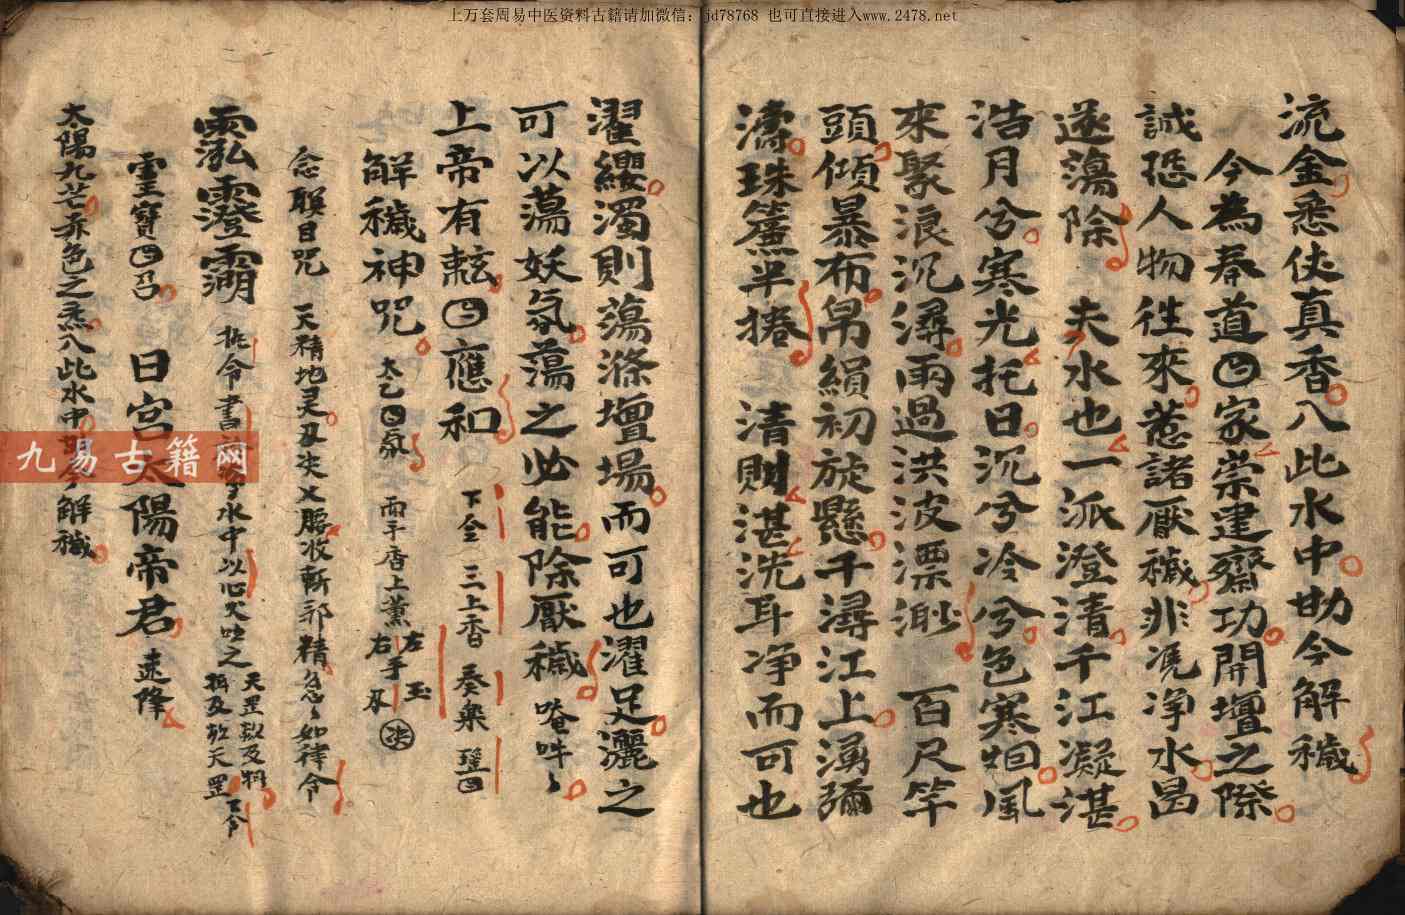 上万套周易中医资料古籍请加微信：jd78768 也可直接进入www.2478.net
流金悉使真香八此水中助今解穢
今為奉道㊁家崇建齋功開壇之際
誠恐人物往來惹諸厭穢非凴净水曷
遂蕩除 夫水也一派澄清千江凝湛
浩月兮寒光托日沉兮冷兮色寒 風
來聚浪沉潯雨過洪波漂渺 百尺竿
頭傾暴布帛絹初旋懸千潯江上湧瀰
濤珠簾半捲 清則湛洗耳净而可也
濯纓濁則蕩滌壇場而可也濯足灑之
可以蕩妖氛蕩之必能除厭穢 唵吽
上帝有 應和 下全 三上香 奏樂
解穢神咒 太乙 氛 兩手香上薰 左玉 右手
念 目咒 天精地灵 收斬邪精 如律令
令書 水中以心火吐之
靈寶 召 日宮太陽帝君 速降
太陽九芒赤色之炁八此水中 今解穢
九易古籍网